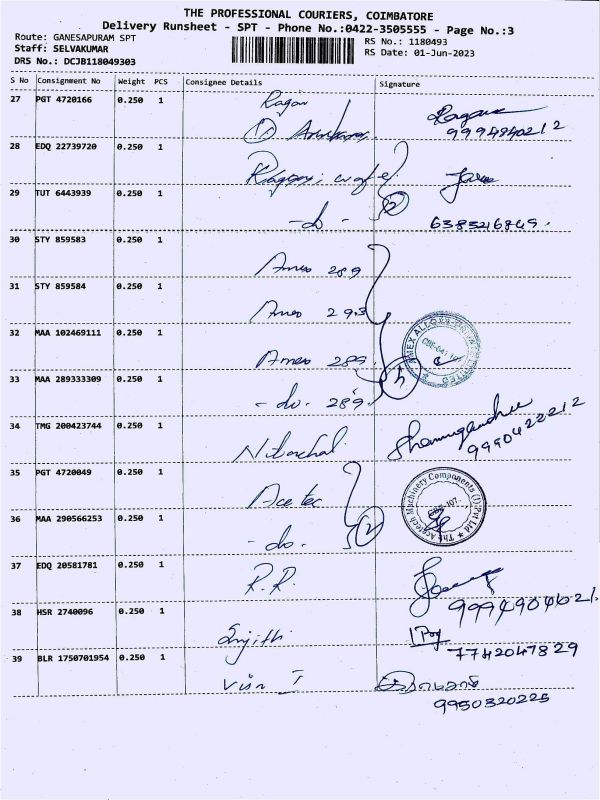 THE PROFESSIONAL COURIERS, COIMBATORE
Delivery Runsheet - SPT - Phone No.:0422-3505555 - Page No.:3
Route: GANESAPURAM SPT
RS No.: 1180493
Staff: SELVAKUMAR
RS Date: 01-Jun-2023
DRS No.: DCJB118049303
S No Consignment No Weight PCS Consignee Details Signature
27 PGT 4720166 0.250 1 Ragav
9994940212
28 EDQ 22739720 0.250 1
29 TUT 6443939 0.250 1 - do - 2
6383216849.
30 STY 859583 0.250 1 Amex 289
31 STY 859584 0.250 1 Amex 293
32 MAA 102469111 0.250 1 Amex 289
AMEX ALLOYS PRIVATE LIMITED
33 MAA 289333309 0.250 1 - do. 289. 4
34 TMG 200423744 0.250 1
9990422212
35 PGT 4720049 0.250 1 Ace tec
The Acetech Machinery Components (I) Pvt Ltd
CBE-107
36 MAA 290566253 0.250 1 - do. 2
37 EDQ 20581781 0.250 1 R.R.
9994904621.
38 HSR 2740096 0.250 1 Srijith
7742047829
39 BLR 1750701954 0.250 1
9950320225